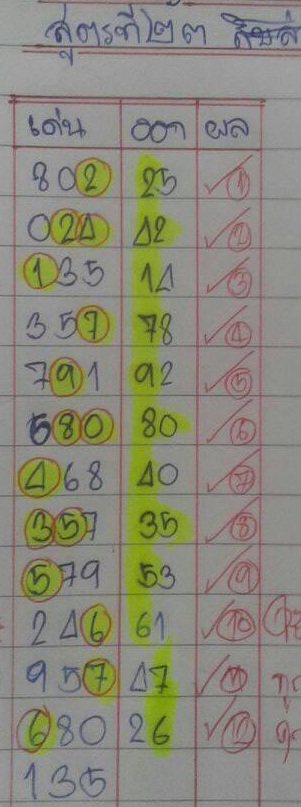 สูตรที่ ๒๓
เด่น ออก ผล
802 25 ✓ 1
024 42 ✓ 2
135 14 ✓ 3
357 78 ✓ 4
791 92 ✓ 5
580 80 ✓ 6
468 40 ✓ 7
357 35 ✓ 8
579 53 ✓ 9
246 61 ✓ 10
957 47 ✓ 11
680 26 ✓ 12
135